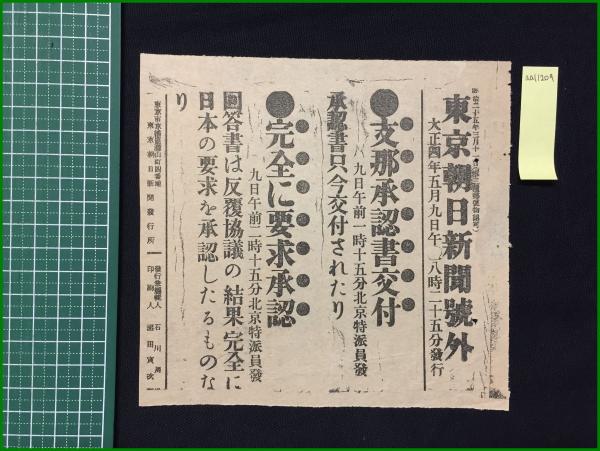 東京朝日新聞號外
大正四年五月九日午　八時二十五分發行
支那承認書交付
九日午前一時十五分北京特派員發
承認書只今交付されたり
完全に要求承認
九日午前二時十五分北京特派員發
回答書は反覆協議の結果完全に
日本の要求を承認したるものな
り
東京朝日新聞發行所
印刷人